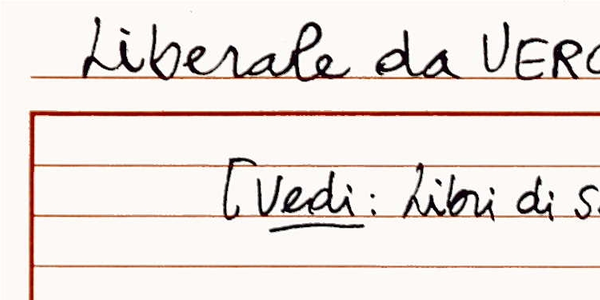 Liberale da VERO
[Vedi: Libri di s